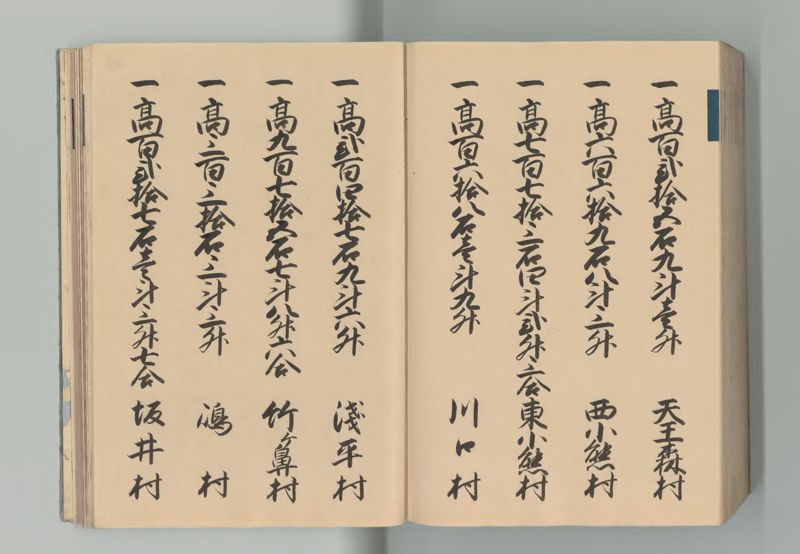 一高百弐拾六石九斗壱升 天王森村
一高六百六拾九石八斗三升 西小熊村
一高七百七拾三石四斗弐升三合 東小熊村
一高百六拾八石壱斗九升 川口村
一高弐百四拾七石九斗六升 浅平村
一高九百七拾六石七斗八升六合 竹ヶ鼻村
一高三百三拾石三斗三升 嶋村
一高百弐拾七石壱斗三升七合 坂井村